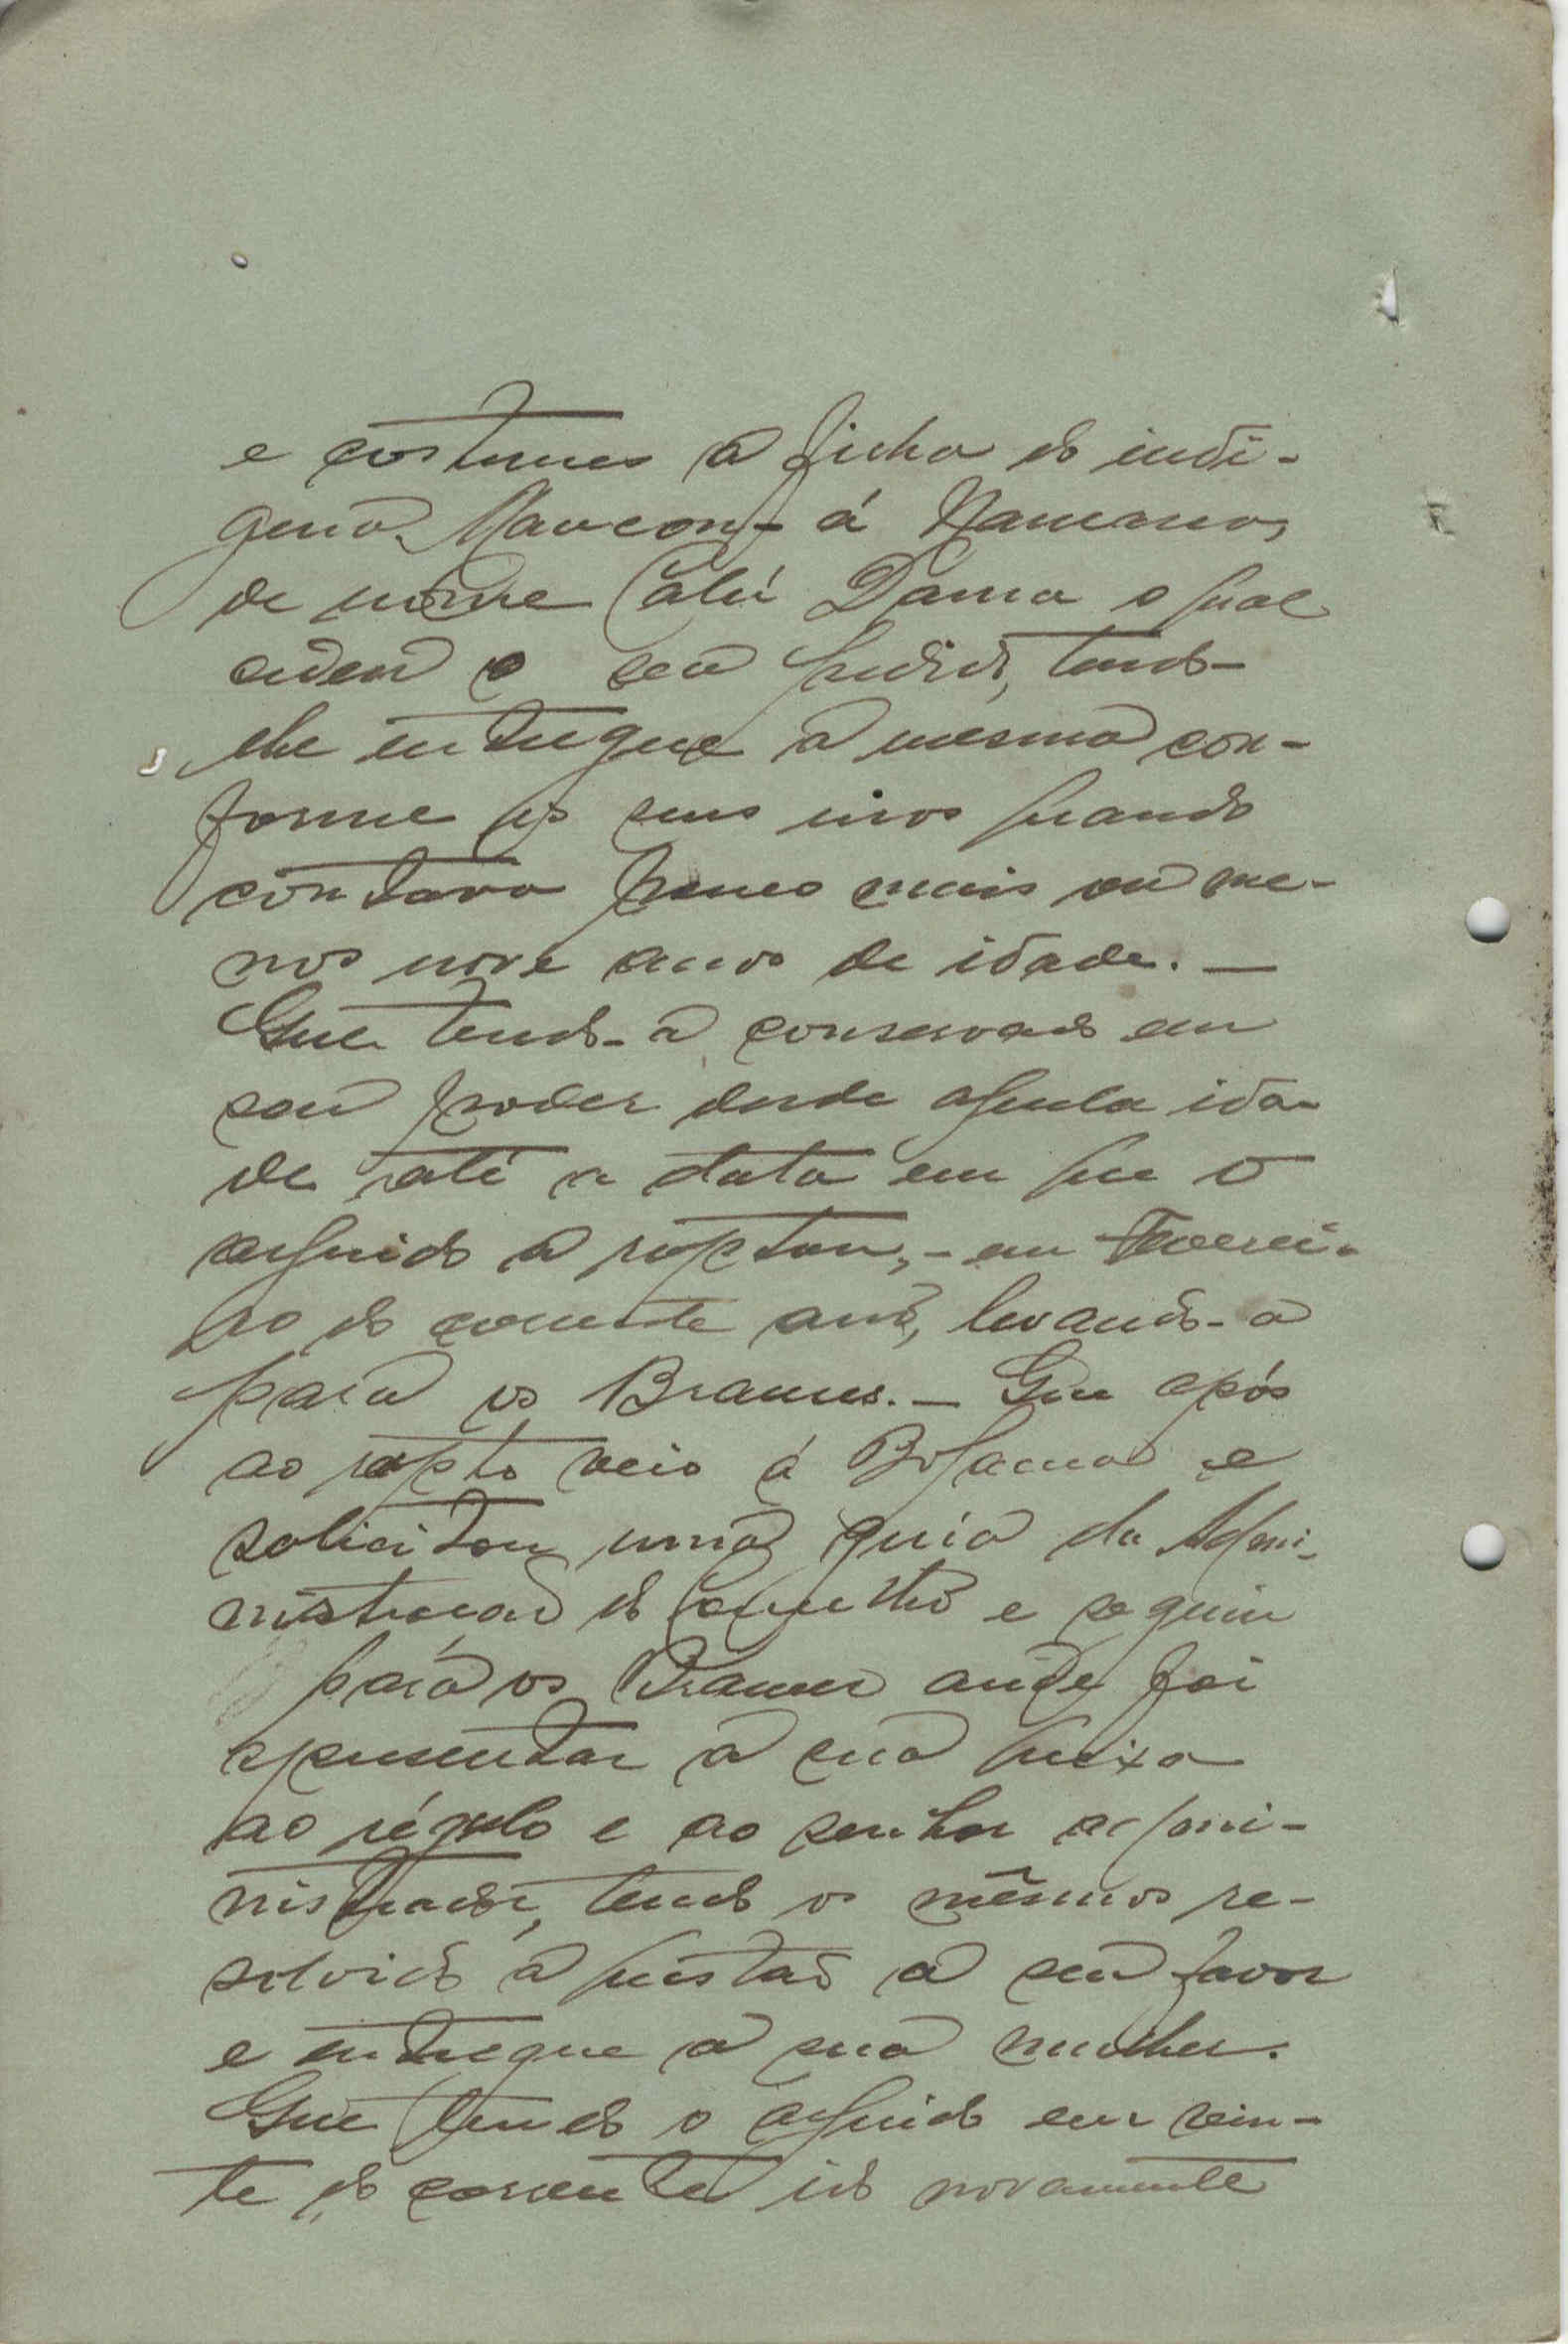 e costumes a ficha do indi-
gena Mancon- á Namano,
de nome Calú Dama o qual
cedeu o seu pedido, tendo-
lhe entregue a mesma con-
forme os seus usos quando
contava pouco mais ou me-
nos nove anos de idade. —
Que tendo-a conservado em
seu poder desde aquela ida-
de até a data em que o
arguido a raptou, - em Feverei-
ro do corrente ano, levando-a
para os Brames. — Que após
ao rapto veio á Bolama e
solicitou uma guia da Admi-
nistração do Concelho e seguiu
para os Brames onde foi
apresentar a sua queixa
ao régulo e ao senhor admi-
nistrador, tendo os mêsmos re-
solvido a questão a seu favor
e entregue a sua mulher.
Que tendo o arguido em vin-
te do corrente ido novamente